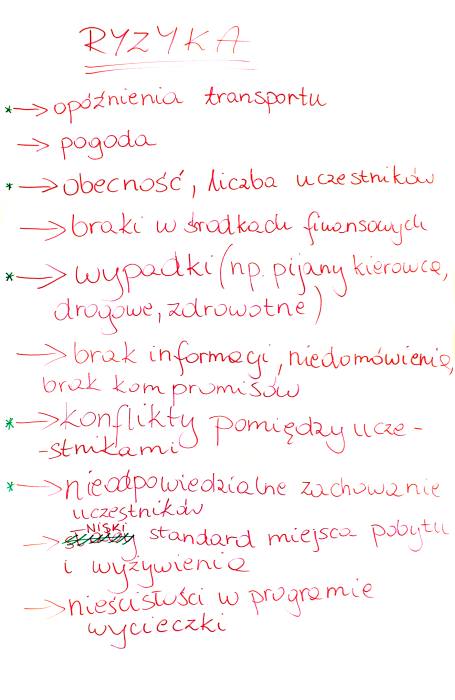 RYZYKA
* → opóźnienia transportu
→ pogoda
* → obecność, liczba uczestników
→ braki w środkach finansowych
* → wypadki (np. pijany kierowca,
drogowe, zdrowotne)
→ brak informacji, niedomówienia,
brak kompromisów
* → konflikty pomiędzy ucze-
-stnikami
* → nieodpowiedzialne zachowanie
uczestników
NISKI
→ standard miejsca pobytu
i wyżywienia
→ nieścisłości w programie
wycieczki